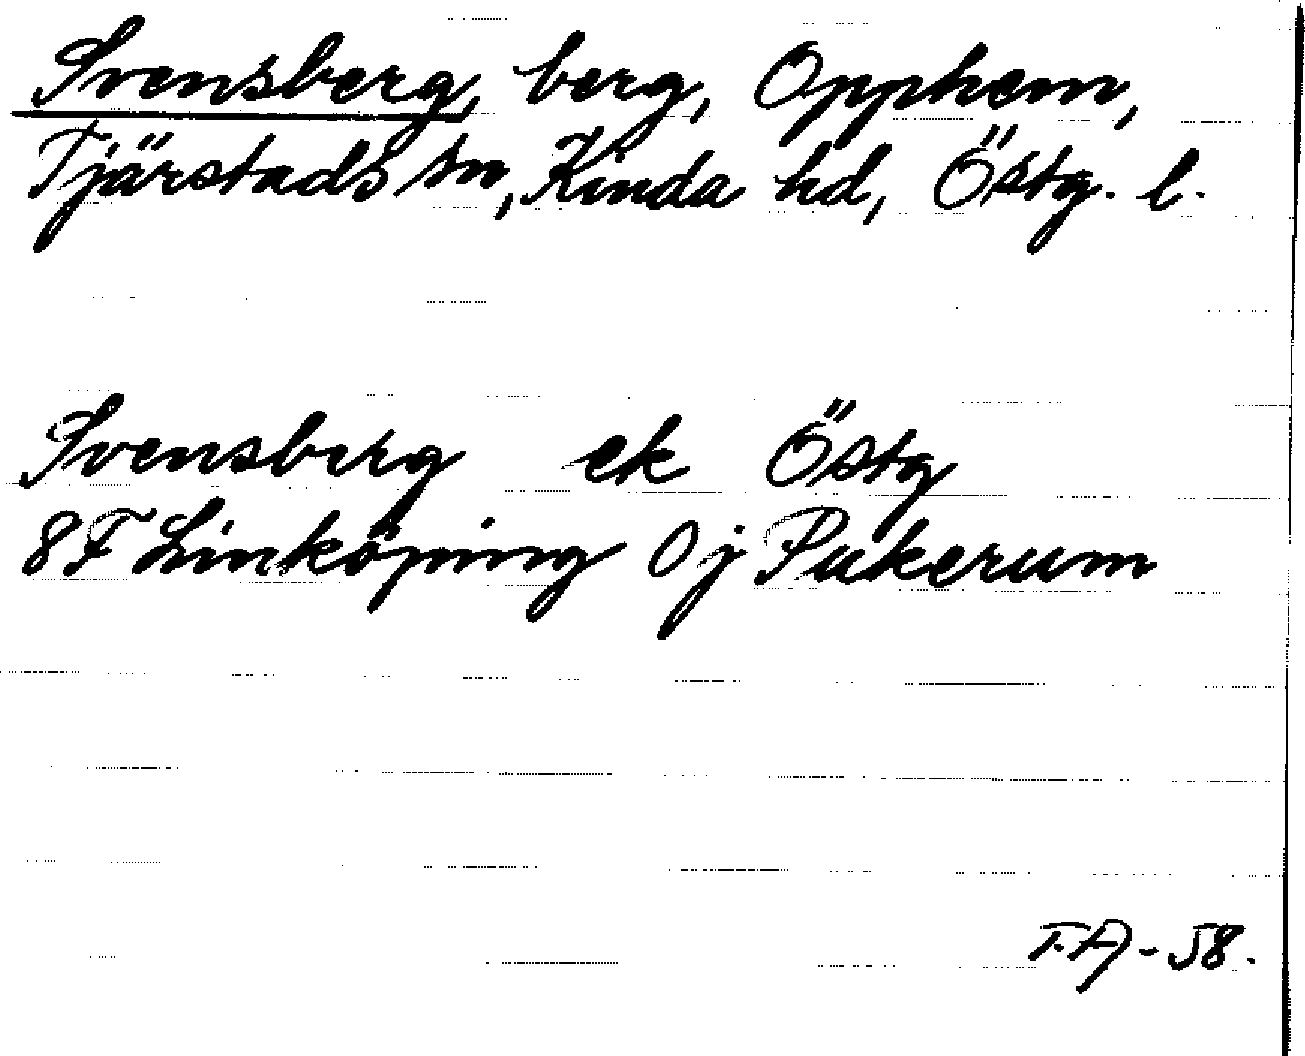 Svensberg, berg, Opphem,
Tjärstads sn, Kinda hd, Östg. l.
Svensberg ek Östg
8F Linköping 0j Pukerum
T.A-58.